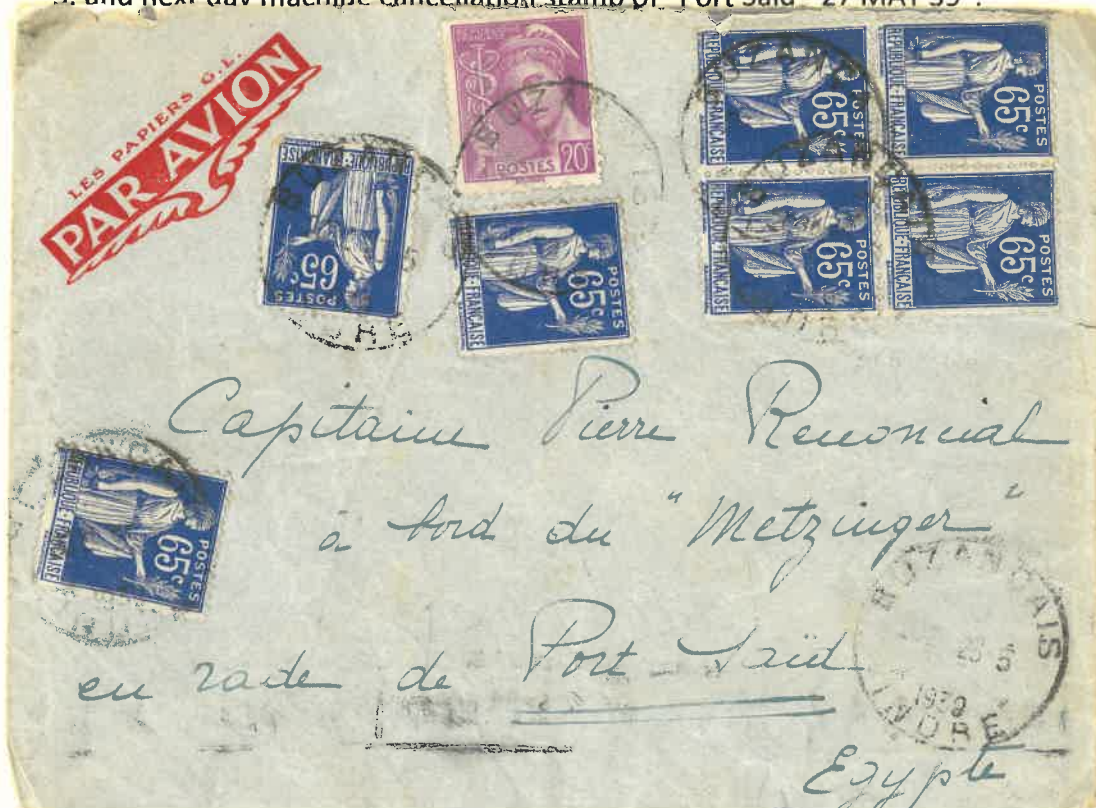 5. and next day machine cancellation stamp of "Port Said" "27 MAY 39".
LES PAPIERS G.L.
PAR AVION
POSTES 20c
REPUBLIQUE·FRANÇAISE POSTES 65c
REPUBLIQUE·FRANÇAISE POSTES 65c
REPUBLIQUE·FRANÇAISE POSTES 65c
REPUBLIQUE·FRANÇAISE POSTES 65c
REPUBLIQUE·FRANÇAISE POSTES 65c
REPUBLIQUE·FRANÇAISE POSTES 65c
REPUBLIQUE·FRANÇAISE POSTES 65c
Capitaine Pierre
à bord du "Metzinger"
en rade de Port Saïd
Egypte
BUZANÇAIS
5
1939
INDRE